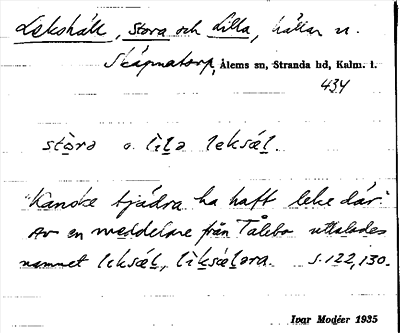 Lekshäll, Stora och Lilla, hällar n.
Skäpnatorp, Ålems sn, Stranda hd, Kalm. l.
434
stòra o. lìla leksäl.
"Kanske tjädra ha haft leke där."
Av en meddelare från Tålebo uttalades
namnet leksäl, lìksäləra. s. 122, 130.
Ivar Modéer 1935